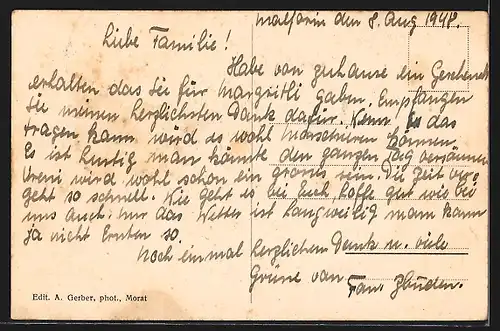 den 8. Aug 1948.
Liebe Familie!
Habe von zuhause ein Geschenk
erhalten das Sei für Margritli gaben. Empfangen
Sie meinen herzlichsten Dank dafür. Wenn Es das
tragen kann wird es wohl können
Es ist lustig man könnte den ganzen Tag versäumen
Vreni wird wohl schon ein groses sein. Die Zeit ver-
geht so schnell. Wie geht es bei Euch, hoffe gut wie bei
uns auch, nur das Wetter ist langweilig mann kann
ja nicht Ernten so.
Noch einmal herzlichen Dank u. viele
Grüse von
Fam.
Edit. A. Gerber, phot., Morat